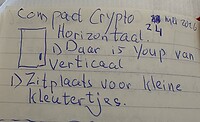 Compact Crypto
24 mei 2020
Horizontaal.
1) Daar is Youp van
Verticaal
1) Zitplaats voor kleine
kleutertjes.